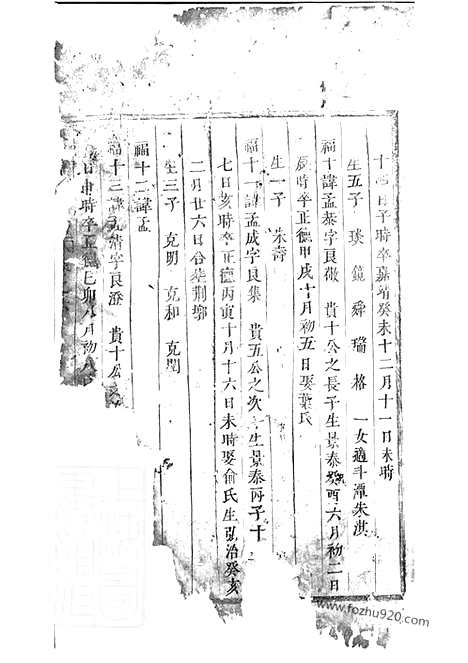 十四日子時卒嘉靖癸未十二月十一日未時
生五子 瑛 鏡 舜 瑞 格 一女適斗潭朱淇
福十諱孟恭字良敬 貴十公之長子生景泰癸酉六月初二日
時卒正德甲戌十月初五日娶葉氏
生一子 朱壽
福十一諱孟成字良集 貴五公之次子生景泰丙子十二
七日亥時卒正德丙寅十月十六日未時娶俞氏生弘治癸亥
二月廿六日合葬荆塢
生三子 克明 克和 克閏
福十二諱孟
福十三諱孟清字良澄 貴十公
日申時卒正德己卯八月初八日
www.fozhu920.com